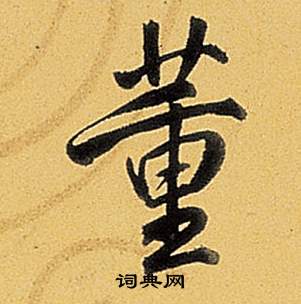 董
词典网